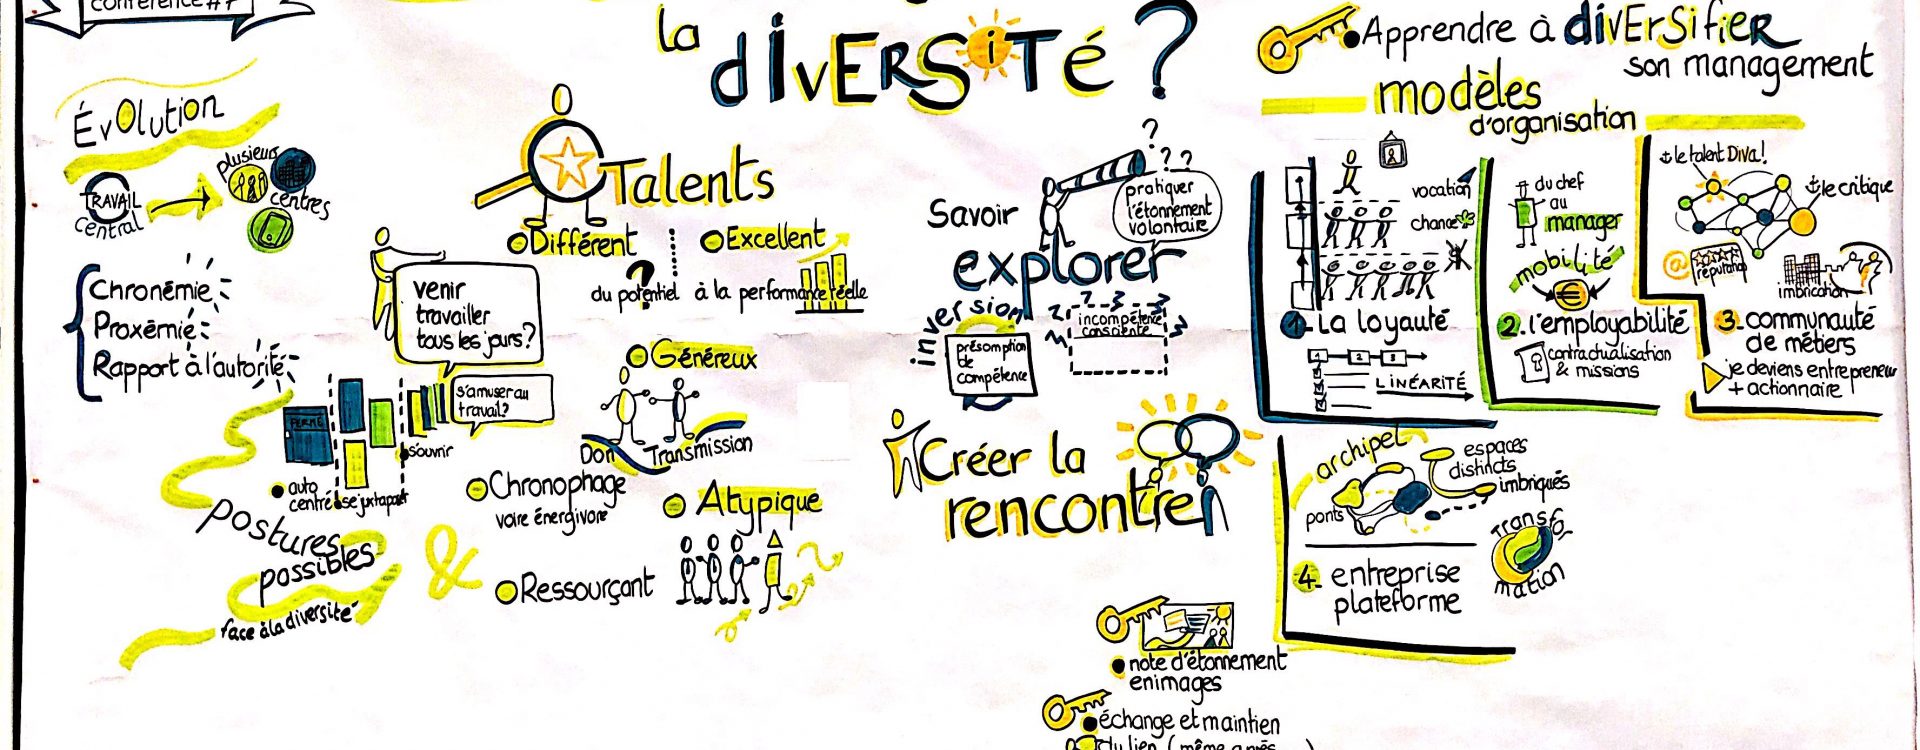 conférence #7
la
diVERSiTé ?
Évolution
TRAVAIL
central
plusieurs
centres
Chronémie
Proxémie
Rapport à l'autorité
venir
travailler
tous les jours?
s'amuser au
travail?
FERMÉ
s'ouvrir
auto
centré
se juxtaposer
postures
possibles
face à la diversité
&
Talents
Différent
Excellent
?
du potentiel
à la performance réelle
Généreux
Don
Transmission
Chronophage
voire énergivore
Atypique
Ressourçant
Savoir
explorer
? ? ?
pratiquer
l'étonnement
volontaire
inversion
présomption
de
compétence
incompétence
consciente
Créer la
rencontre
note d'étonnement
en images
échange et maintien
du lien (même après
Apprendre à divERSifiER
son management
modèles
d'organisation
vocation
chance
1. La loyauté
1 2 3
LiNÉARiTÉ
du chef
au
manager
mobilité
€
2. l'employabilité
contractualisation
& missions
le talent Diva!
le critique
@
réputation
imbrication
3. communauté
de métiers
je deviens entrepreneur
+ actionnaire
archipel
espaces
distincts
imbriqués
ponts
Transfo
mation
4. entreprise
plateforme